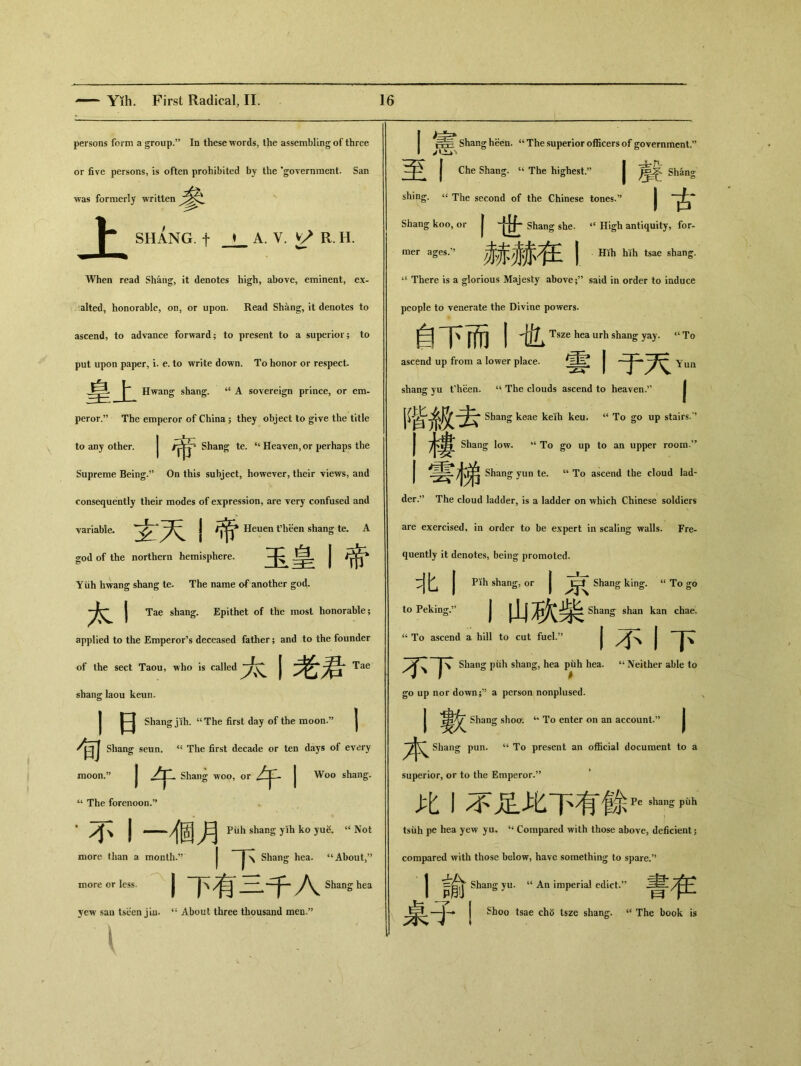 — Yĭh. First Radical, II. 16
persons form a group.” In these words, the assembling of three
or five persons, is often prohibited by the 'government. San
was formerly written 參
上 SHÀNG. † 丄 A. V. R. H.
When read Shàng, it denotes high, above, eminent, ex-
alted, honorable, on, or upon. Read Shàng, it denotes to
ascend, to advance forward; to present to a superior; to
put upon paper, i. e. to write down. To honor or respect.
皇上 Hwang shang. “ A sovereign prince, or em-
peror.” The emperor of China ; they object to give the title
to any other. 丨帝 Shang te. “ Heaven, or perhaps the
Supreme Being.” On this subject, however, their views, and
consequently their modes of expression, are very confused and
variable. 玄天丨帝 Heuen t'hëen shang te. A
god of the northern hemisphere. 玉皇丨帝
Yüh hwang shang te. The name of another god.
太丨 Tae shang. Epithet of the most honorable;
applied to the Emperor's deceased father; and to the founder
of the sect Taou, who is called 太丨老君 Tae
shang laou keun.
丨日 Shang jĭh. “The first day of the moon.” 丨
旬 Shang seun. “ The first decade or ten days of every
moon.” 丨午 Shang woo, or 午丨 Woo shang.
“ The forenoon.”
不丨一個月 Püh shang yĭh ko yuĕ. “ Not
more than a month.” 丨下 Shang hea. “About,”
more or less. 丨下有三千人 Shang hea
yew san tsëen jin. “ About three thousand men.”
丨憲 Shang hëen. “ The superior officers of government.”
至丨 Che Shang. “ The highest.” 丨聲 Shàng
shing. “ The second of the Chinese tones.” 丨古
Shang koo, or 丨世 Shang she. “ High antiquity, for-
mer ages.” 赫赫在丨 Hĭh hĭh tsae shang.
“ There is a glorious Majesty above;” said in order to induce
people to venerate the Divine powers.
自下而丨也 Tsze hea urh shang yay. “ To
ascend up from a lower place. 雲丨于天 Yun
shang yu t'hëen. “ The clouds ascend to heaven.” 丨
階級去 Shang keae keĭh keu. “ To go up stairs.”
丨樓 Shang low. “ To go up to an upper room.”
丨雲梯 Shang yun te. “ To ascend the cloud lad-
der.” The cloud ladder, is a ladder on which Chinese soldiers
are exercised, in order to be expert in scaling walls. Fre-
quently it denotes, being promoted.
北丨 Pĭh shang, or 丨京 Shang king. “ To go
to Peking.” 丨山砍柴 Shang shan kan chae.
“ To ascend a hill to cut fuel.” 丨不丨下
不下 Shang püh shang, hea püh hea. “ Neither able to
go up nor down;” a person nonplused.
丨數 Shang shoo. “ To enter on an account.” 丨
本 Shang pun. “ To present an official document to a
superior, or to the Emperor.”
比丨不足比下有餘 Pe shang püh
tsüh pe hea yew yu. “ Compared with those above, deficient;
compared with those below, have something to spare.”
丨諭 Shang yu. “ An imperial edict.” 書在
桌子丨 Shoo tsae chŏ tsze shang. “ The book is